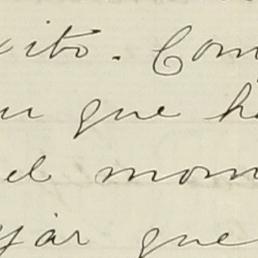 xito. Com
u que h
el mom
jar que